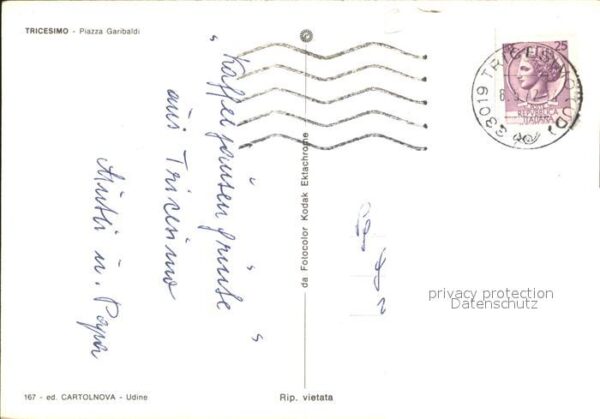 TRICESIMO - Piazza Garibaldi
„Kaffeejausengrüsse“
aus Tricesimo
Mutti u. Papa
167 - ed. CARTOLNOVA - Udine
da Fotocolor Kodak Ektachrome
Rip. vietata
25
REPUBBLICA
ITALIANA
33019 TRICESIMO (UD)
privacy protection
Datenschutz